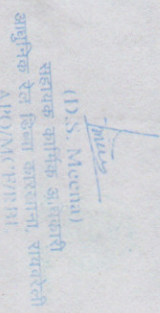 (D.S. Meena)
सहायक कार्मिक अधिकारी
आधुनिक रेल डिब्बा कारखाना, रायबरेली
APO/MCF/RBL